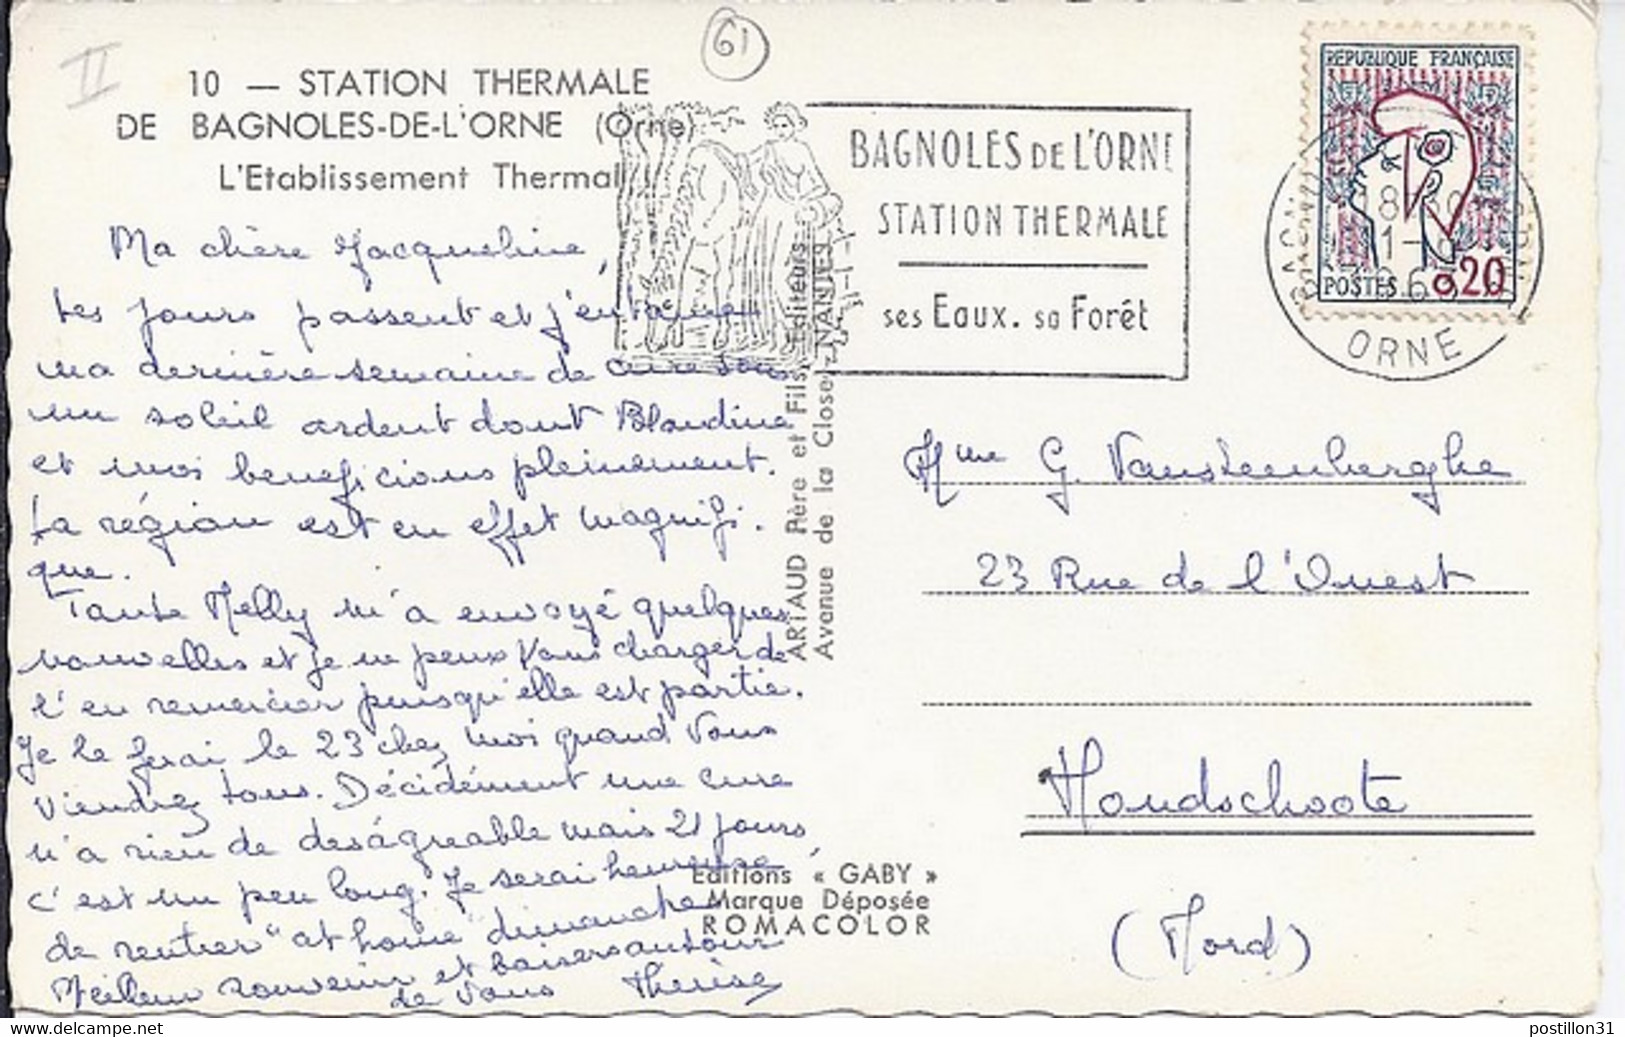 II
61
10 — STATION THERMALE
DE BAGNOLES-DE-L'ORNE (Orne)
L'Etablissement Thermal
Ma chère Jacqueline,
Les jours passent et j'entame
ma dernière semaine de cure sous
un soleil ardent dont Blandine
et moi beneficions pleinement.
La région est en effet magnifi-
que.
Tante Nelly m'a envoyé quelques
nouvelles et je ne peux vous charger de
l'en remercier puisqu'elle est partie.
Je le ferai le 23 chez moi quand vous
viendrez tous. Décidément une cure
n'a rien de deságreable mais 21 jours,
c'est un peu long. Je serai heureuse
de rentrer "at home" dimanche
Meilleur souvenir et baisers autour
de vous Thérèse
ARTAUD Père et Fils, Editeurs
Avenue de la Close - NANTES
BAGNOLES DE L'ORNE
STATION THERMALE
ses Eaux. sa Forêt
RÉPUBLIQUE FRANÇAISE
POSTES 0,20
ORNE
Mme G. Vansteenberghe
23 Rue de l'Ouest
Hondschoote
(Nord)
Editions « GABY »
Marque Déposée
ROMACOLOR
postillon31